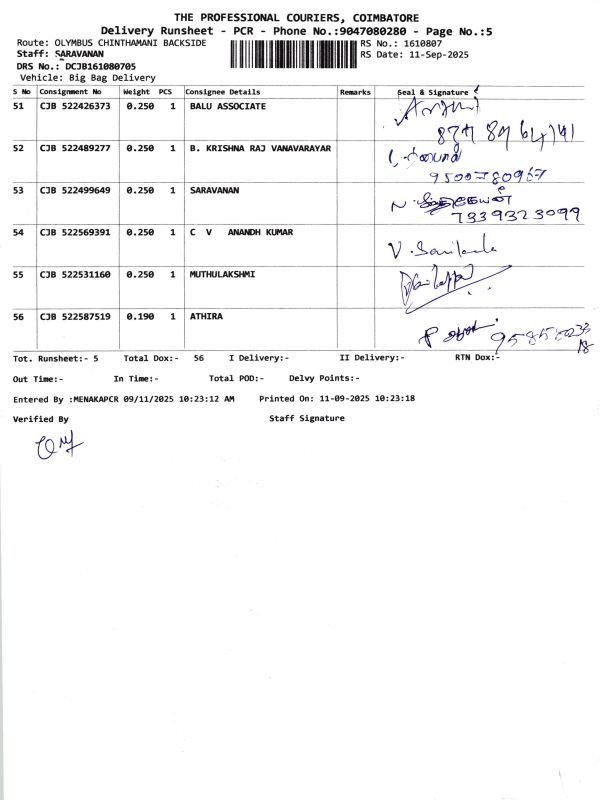 THE PROFESSIONAL COURIERS, COIMBATORE
Delivery Runsheet - PCR - Phone No.:9047080280 - Page No.:5
Route: OLYMBUS CHINTHAMANI BACKSIDE RS No.: 1610807
Staff: SARAVANAN RS Date: 11-Sep-2025
DRS No.: DCJB161080705
Vehicle: Big Bag Delivery
S No Consignment No Weight PCS Consignee Details Remarks Seal & Signature
51 CJB 522426373 0.250 1 BALU ASSOCIATE
52 CJB 522489277 0.250 1 B. KRISHNA RAJ VANAVARAYAR
9500780967
53 CJB 522499649 0.250 1 SARAVANAN
7339323099
54 CJB 522569391 0.250 1 C V ANANDH KUMAR
55 CJB 522531160 0.250 1 MUTHULAKSHMI
56 CJB 522587519 0.190 1 ATHIRA
Tot. Runsheet:- 5 Total Dox:- 56 I Delivery:- II Delivery:- RTN Dox:-
Out Time:- In Time:- Total POD:- Delvy Points:-
Entered By :MENAKAPCR 09/11/2025 10:23:12 AM Printed On: 11-09-2025 10:23:18
Verified By Staff Signature